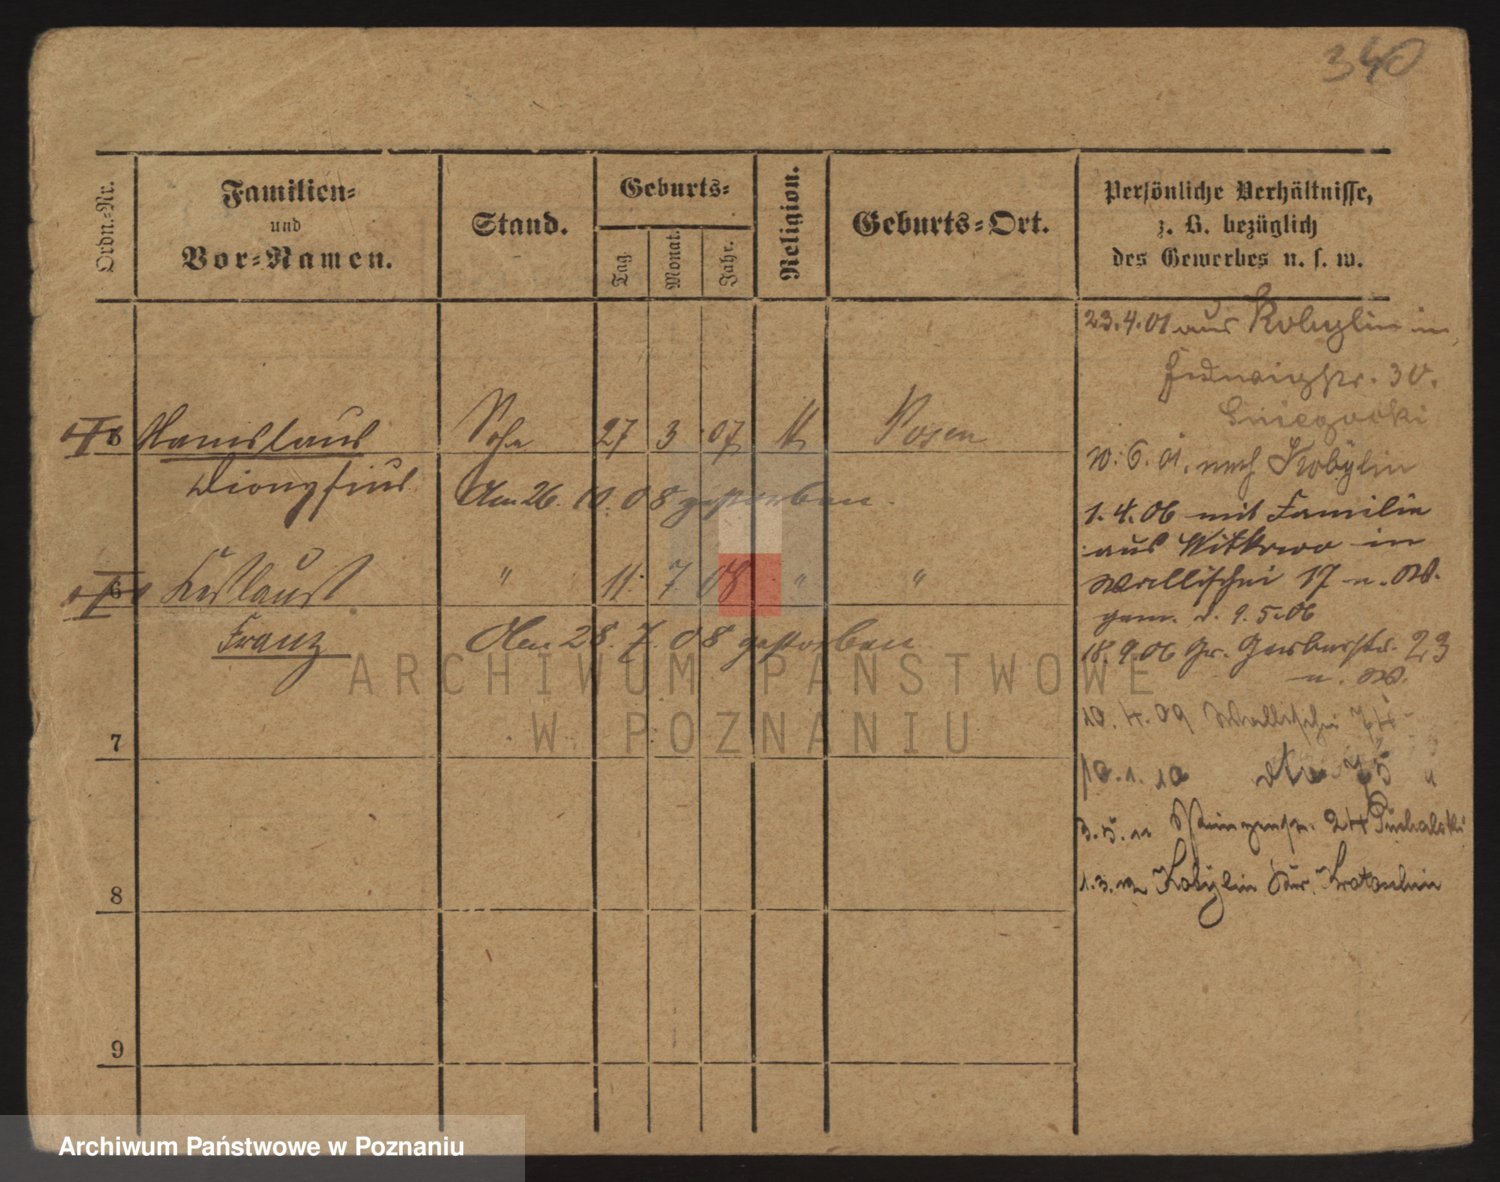 340
Ordn.-Nr.
Familien-
und
Vor-Namen.
Stand.
Geburts-
Tag.
Monat.
Jahr.
Religion.
Geburts-Ort.
Persönliche Verhältnisse,
z. B. bezüglich
des Gewerbes u. s. w.
23.4.01 aus Kobylin in
30.
5 Stanislaus Sohn 27 3 07 K Posen
Dionysius
Am 26. 10. 08 gestorben.
6 " 11. 7. 08 " "
Franz
Am 28. 7. 08 gestorben
6. 01. nach Kobylin
1. 4. 06 mit Familie
aus Witkowo in
Wallischei 17 u. W.
gem. d. 9. 5. 06
18. 9. 06 Gr. Gerberstr. 23
u. W.
10. 4. 09 Wallischei 74
10. 1. 10 dto 75
3. 5. 11 24 Puchalski
1. 3. 12 Kobylin Kr. Krotoschin
7
8
9
ARCHIWUM PAŃSTWOWE
W POZNANIU
Archiwum Państwowe w Poznaniu